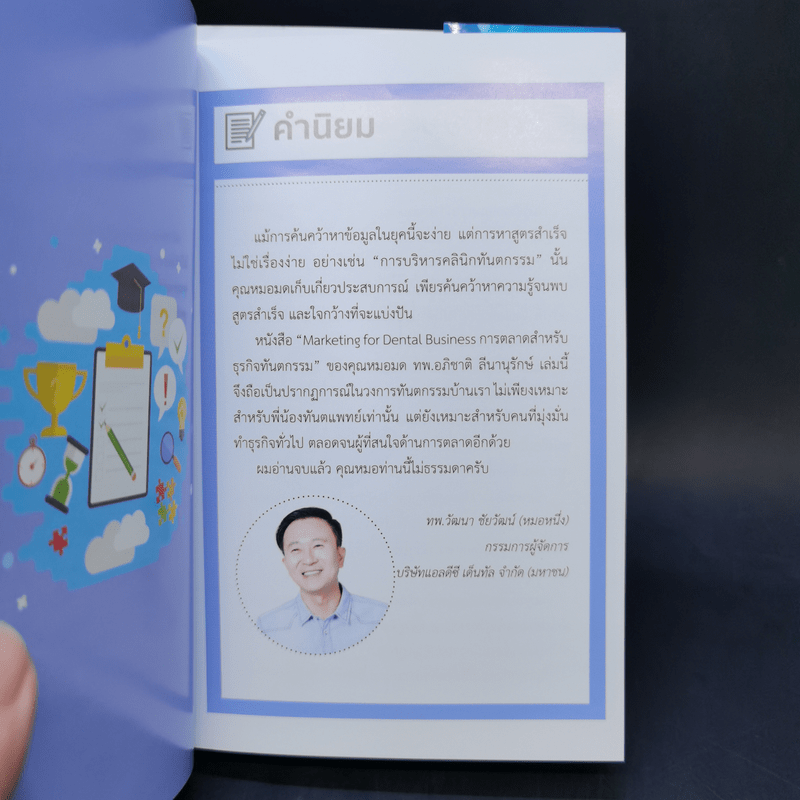 คำนิยม
แม้การค้นคว้าหาข้อมูลในยุคนี้จะง่าย แต่การหาสูตรสำเร็จ
ไม่ใช่เรื่องง่าย อย่างเช่น “การบริหารคลินิกทันตกรรม” นั้น
คุณหมอมดเก็บเกี่ยวประสบการณ์ เพียรค้นคว้าหาความรู้จนพบ
สูตรสำเร็จ และใจกว้างที่จะแบ่งปัน
หนังสือ “Marketing for Dental Business การตลาดสำหรับ
ธุรกิจทันตกรรม” ของคุณหมอมด ทพ.อภิชาติ ลีนานุรักษ์ เล่มนี้
จึงถือเป็นปรากฏการณ์ในวงการทันตกรรมบ้านเรา ไม่เพียงเหมาะ
สำหรับพี่น้องทันตแพทย์เท่านั้น แต่ยังเหมาะสำหรับคนที่มุ่งมั่น
ทำธุรกิจทั่วไป ตลอดจนผู้ที่สนใจด้านการตลาดอีกด้วย
ผมอ่านจบแล้ว คุณหมอท่านนี้ไม่ธรรมดาครับ
ทพ.วัฒนา ชัยวัฒน์ (หมอหนึ่ง)
กรรมการผู้จัดการ
บริษัทแอลดีซี เด็นทัล จำกัด (มหาชน)